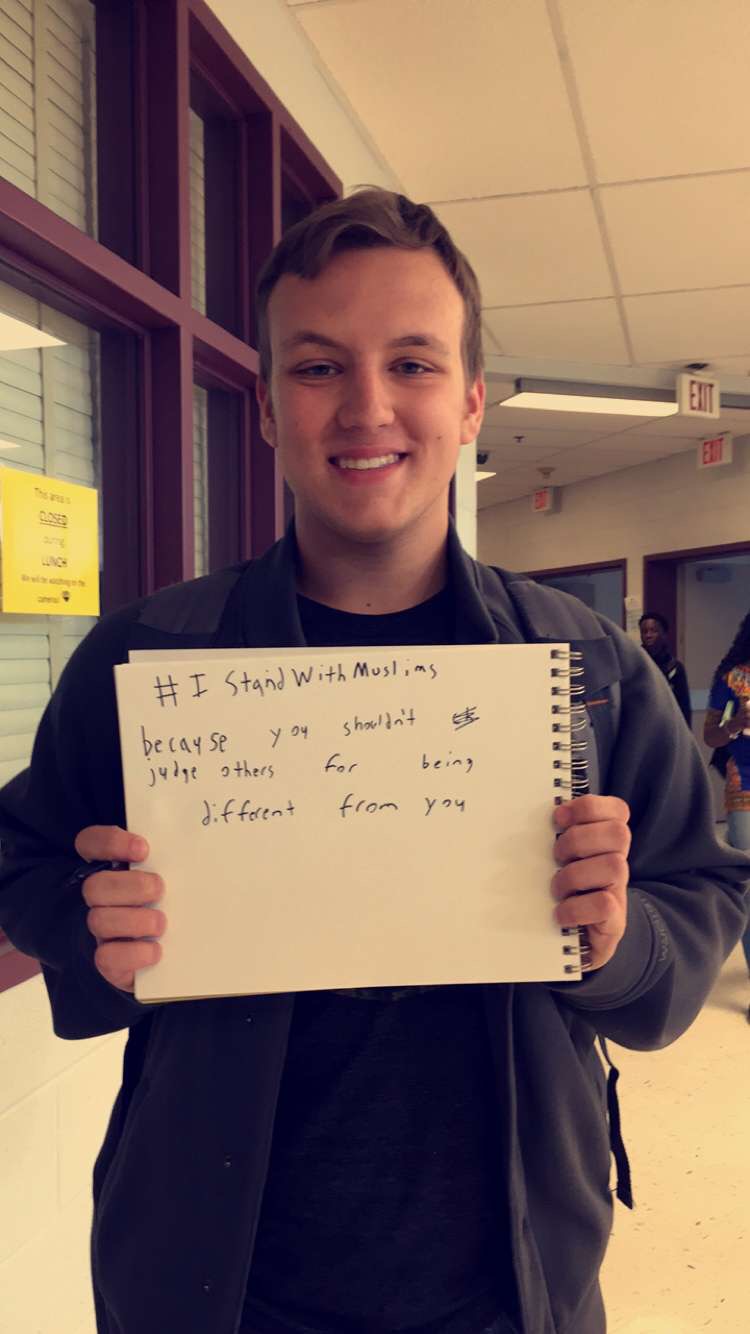 # I Stand With Muslims
because you shouldn't
judge others for being
different from you
This area is
CLOSED
during
LUNCH
We will be watching on the
cameras!
EXIT
EXIT
EXIT